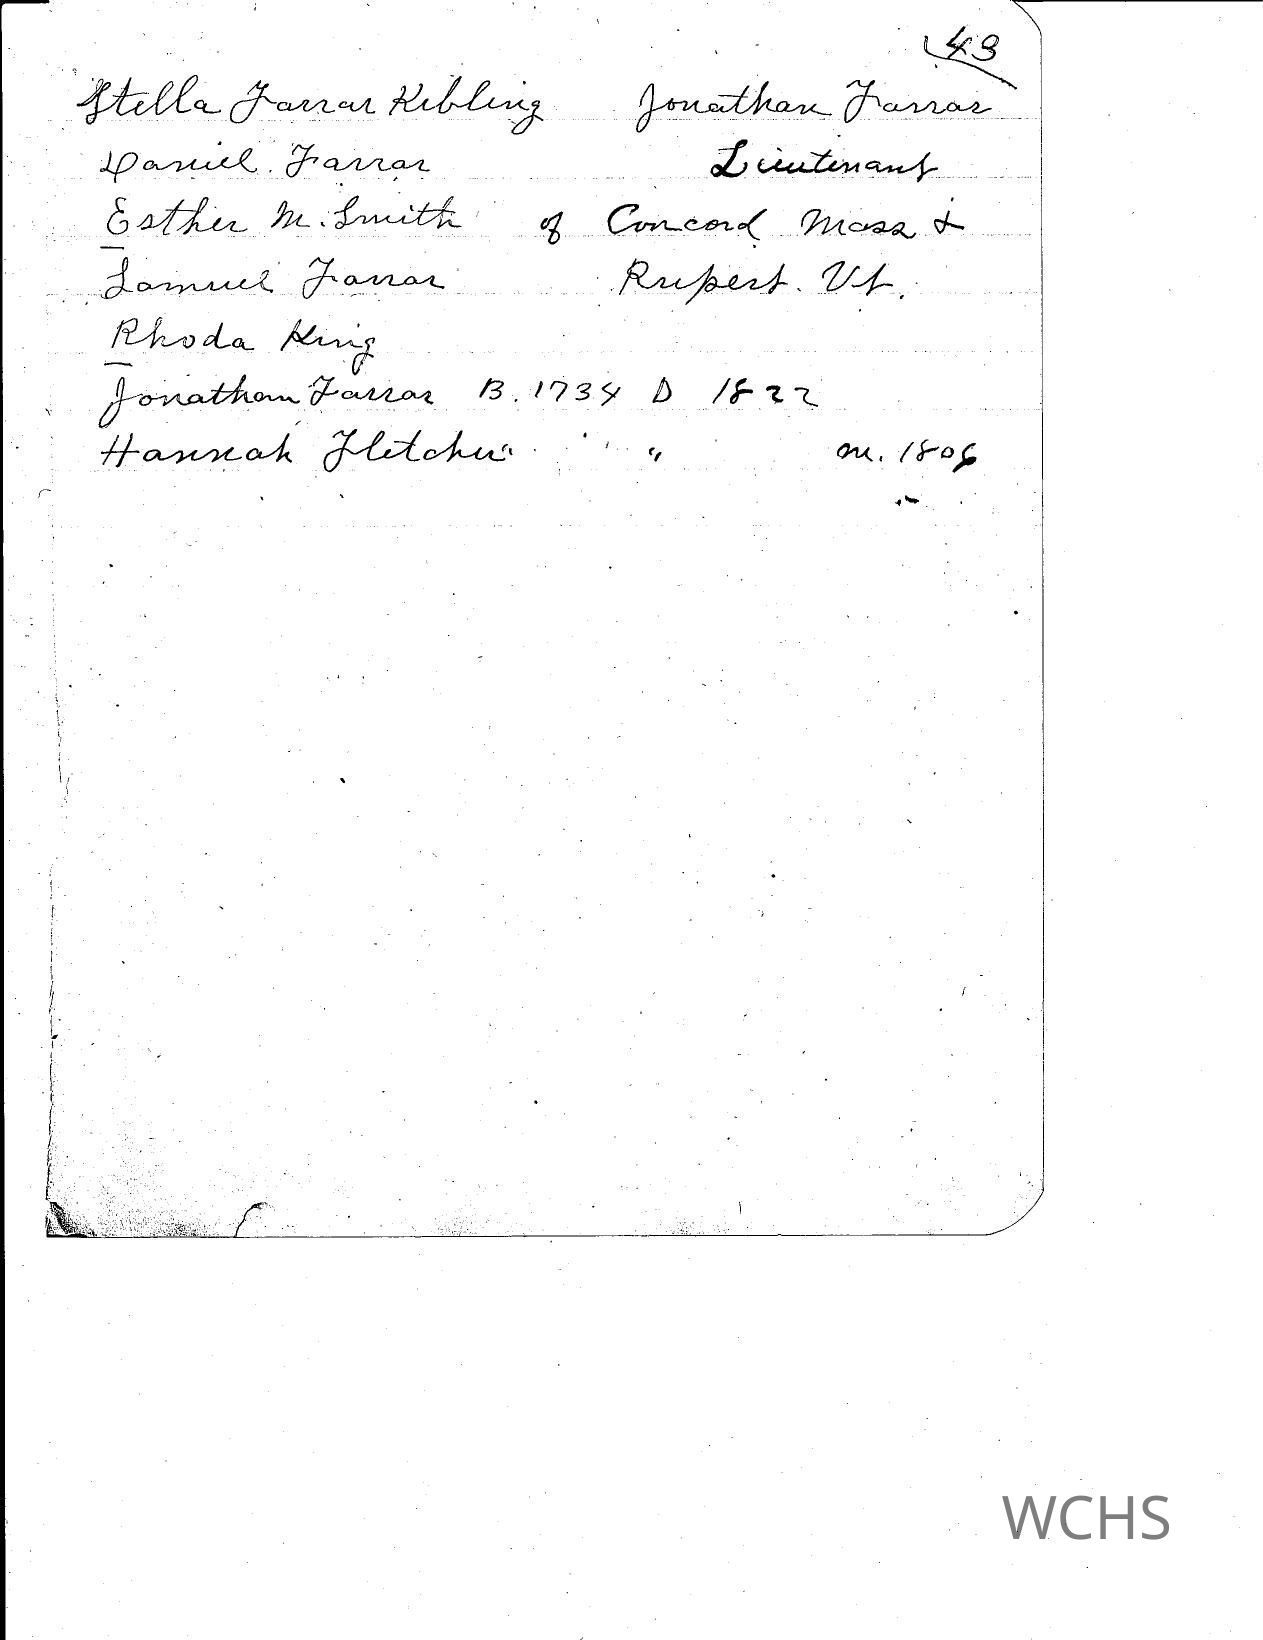 43
Stella Farrar Kibling Jonathan Farrar
Daniel Farrar Lieutenant
Esther M. Smith of Concord Mass &
Samuel Farrar Rupert. Vt.
Rhoda King
Jonathan Farrar B. 1734 D 1822
Hannah Fletcher " " m. 1806
WCHS